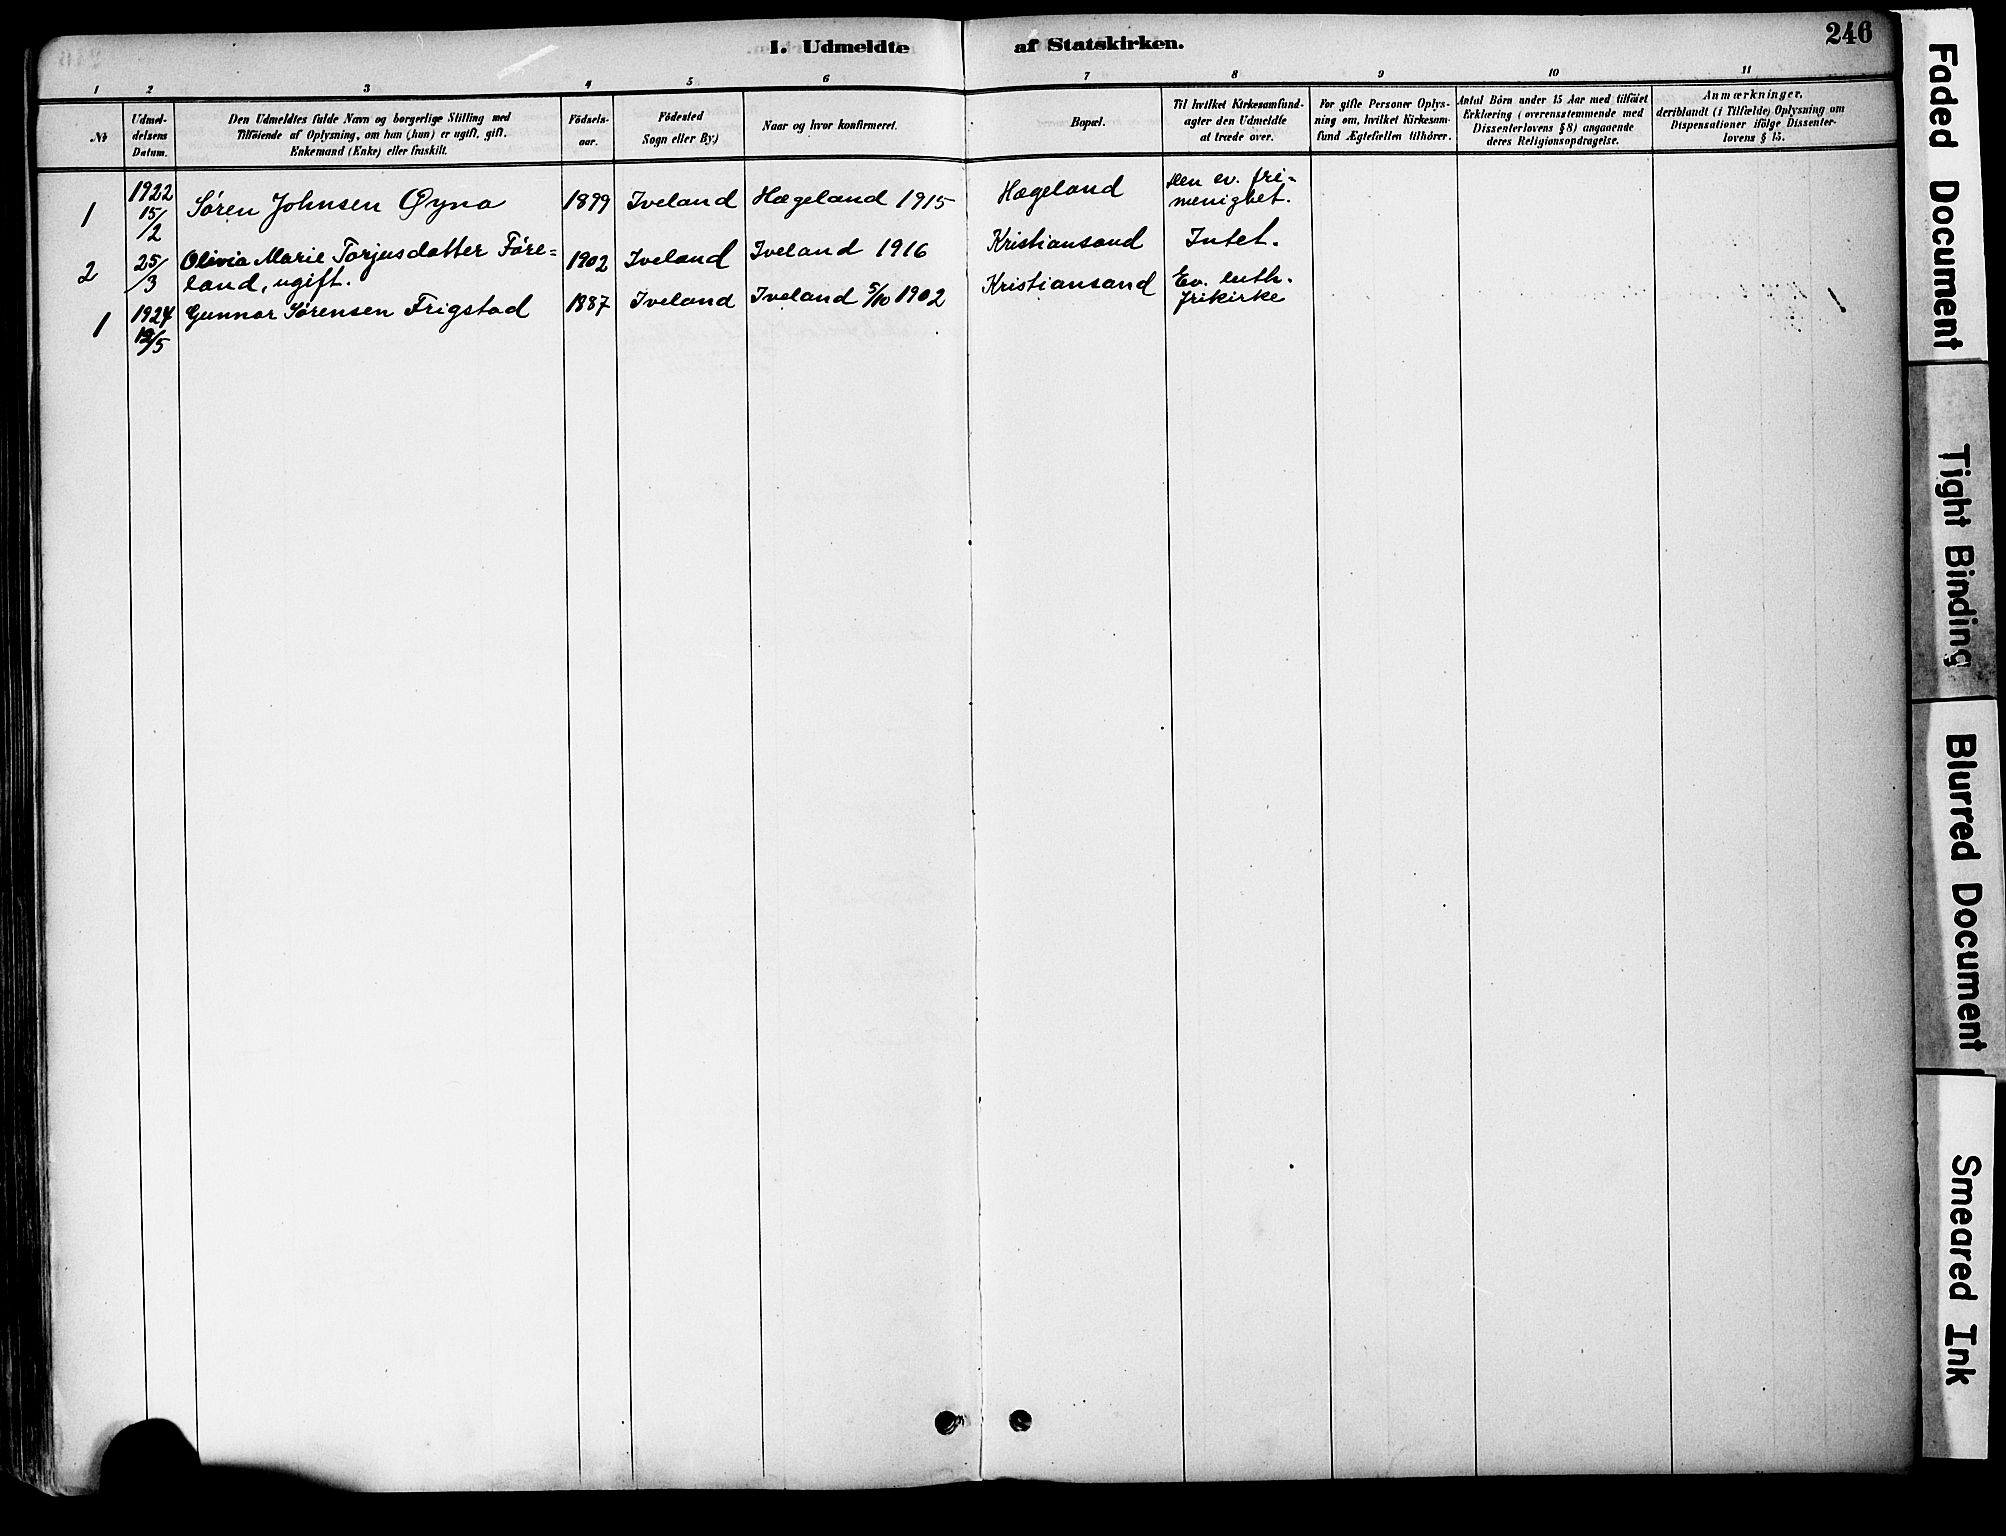 I. Udmeldte af Statskirken. 246
1 2 3 4 5 6 7 8 9 10 11
№
Udmel-
delsens
Datum.
Den Udmeldtes fulde Navn og borgerlige Stilling med
Tilföiende af Oplysning, om han (hun) er ugift, gift,
Enkemand (Enke) eller fraskilt.
Födsels-
aar.
Födested
Sogn eller By)
Naar og hvor konfirmeret.
Bopæl.
Til hvilket Kirkesamfund-
agter den Udmeldte
at træde over.
For gifte Personer Oplys-
ning om, hvilket Kirkesam-
fund Ægtefællen tilhörer.
Antal Börn under 15 Aar med tilföiet
Erklæring (overensstemmende med
Dissenterlovens § 8) angaaende
deres Religionsopdragelse.
Anmærkninger,
deriblandt (i Tilfælde) Oplysning om
Dispensationer ifölge Dissenter-
lovens § 15.
1
1922
15/2
Søren Johnsen Øyna
1899
Iveland
Hægeland 1915
Hægeland
Den ev. fri-
menighet.
2
25/3
Olivia Marie Torjusdatter Føre-
land, ugift.
1902
Iveland
Iveland 1916
Kristiansand
Intet.
1
1924
/5
Gunnar Sørensen Frigstad
1887
Iveland
Iveland 5/10 1902
Kristiansand
Ev. luth.
frikirke
Faded Document
Tight Binding
Blurred Document
Smeared Ink